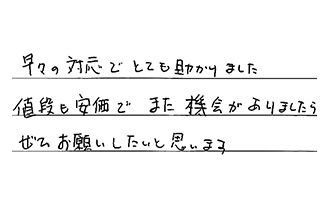 早々の対応でとても助かりました
値段も安価でまた機会がありましたら
ぜひお願いしたいと思います